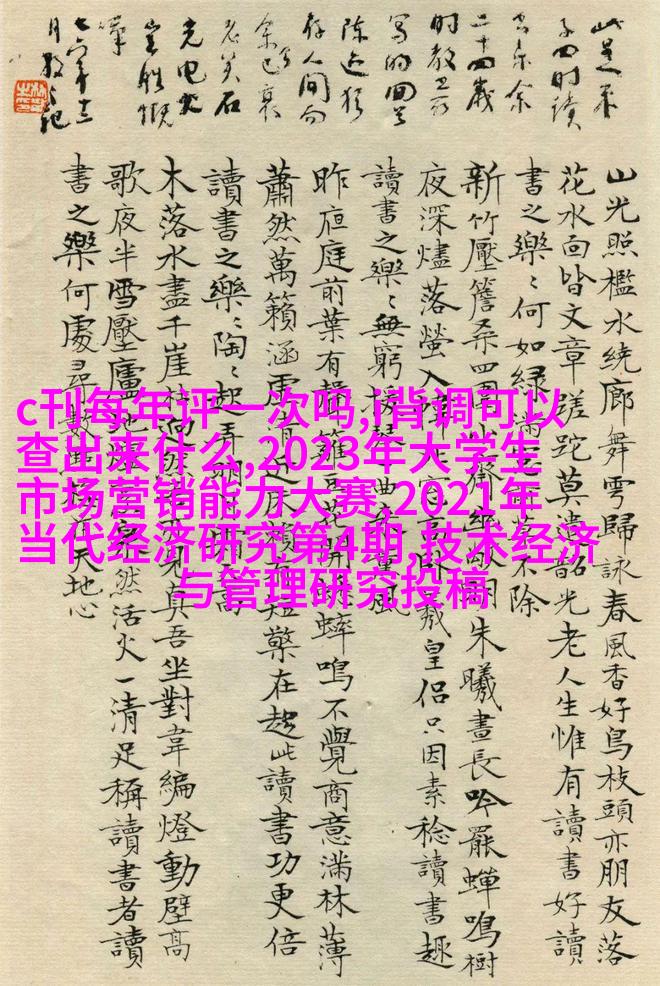 山光照檻水繞廊舞雩歸詠春風香好鳥枝頭亦朋友落
花水面皆文章蹉跎莫遣韶光老人生惟有讀書好讀
書之樂〻何如綠滿窗前草不除
新竹壓簷桑四圍小齋幽敞明朱曦晝長吟罷蟬鳴樹
夜深燼落螢入幃北窗高臥羲皇侶只因素稔讀書趣
讀書之樂〻無窮撥琴一曲來薰風
昨夜庭前葉有聲籬豆花開蟋蟀鳴不覺商意滿林薄
蕭然萬籟涵虛清近床賴有短檠在趁此讀書功更倍
讀書之樂〻陶〻起弄明月霜天高
木落水盡千崖枯迥然吾亦見真吾坐對韋編燈動壁高
歌夜半雪壓廬地爐茶鼎烹活火一清足稱讀書者讀
書之樂何處尋數點梅花天地心
此是翁
子四時讀
書樂余
二十四歲
時教工
寫的回首
陳迹猶
存人間而
余已衰
老矣石
光電火
豈勝慨
嘆
七六年十二
月 記
c刊每年评一次吗,,背调可以
查出来什么,2023年大学生
市场营销能力大赛,2021年
当代经济研究第4期,技术经济
与管理研究投稿